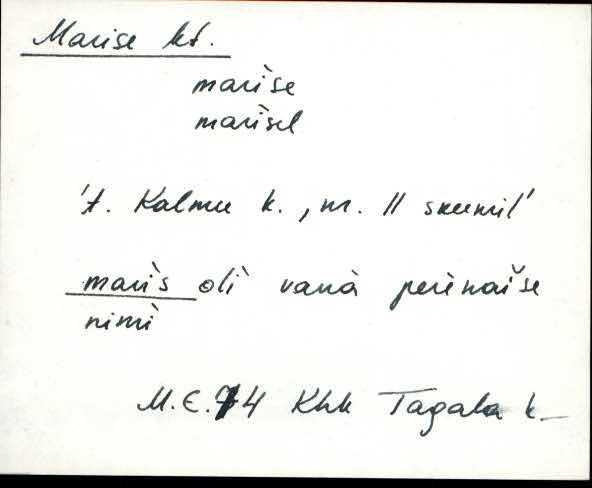 Marise kt.
marìse
marìsel
't. Kalmu k., m. || suurmil'
marìs olì vanà perènaiše
nimì
M.E. 74 Khk Tagala k.